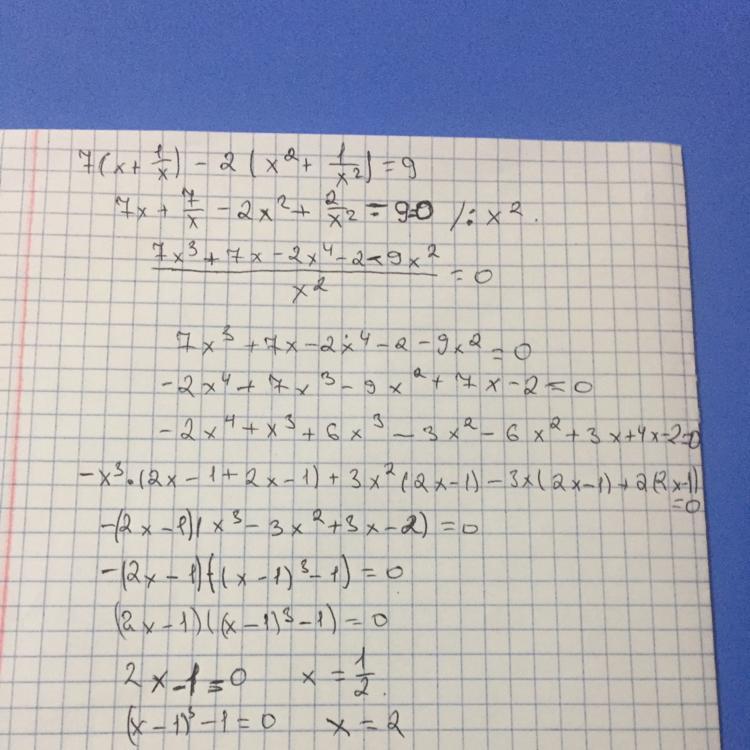 7(x + 1/x) - 2(x² + 1/x²) = 9
7x + 7/x - 2x² + 2/x² = 9=0 /: x².
(7x³ + 7x - 2x⁴ - 2 - 9x²)/x² = 0
7x³ + 7x - 2x⁴ - 2 - 9x² = 0
-2x⁴ + 7x³ - 9x² + 7x - 2 = 0
-2x⁴ + x³ + 6x³ - 3x² - 6x² + 3x + 4x - 2 = 0
-x³·(2x - 1 + 2x - 1) + 3x²(2x - 1) - 3x(2x - 1) + 2(2x - 1) = 0
-(2x - 1)(x³ - 3x² + 3x - 2) = 0
-(2x - 1)((x - 1)³ - 1) = 0
(2x - 1)((x - 1)³ - 1) = 0
2x - 1 = 0 x = 1/2.
(x - 1)³ - 1 = 0 x = 2